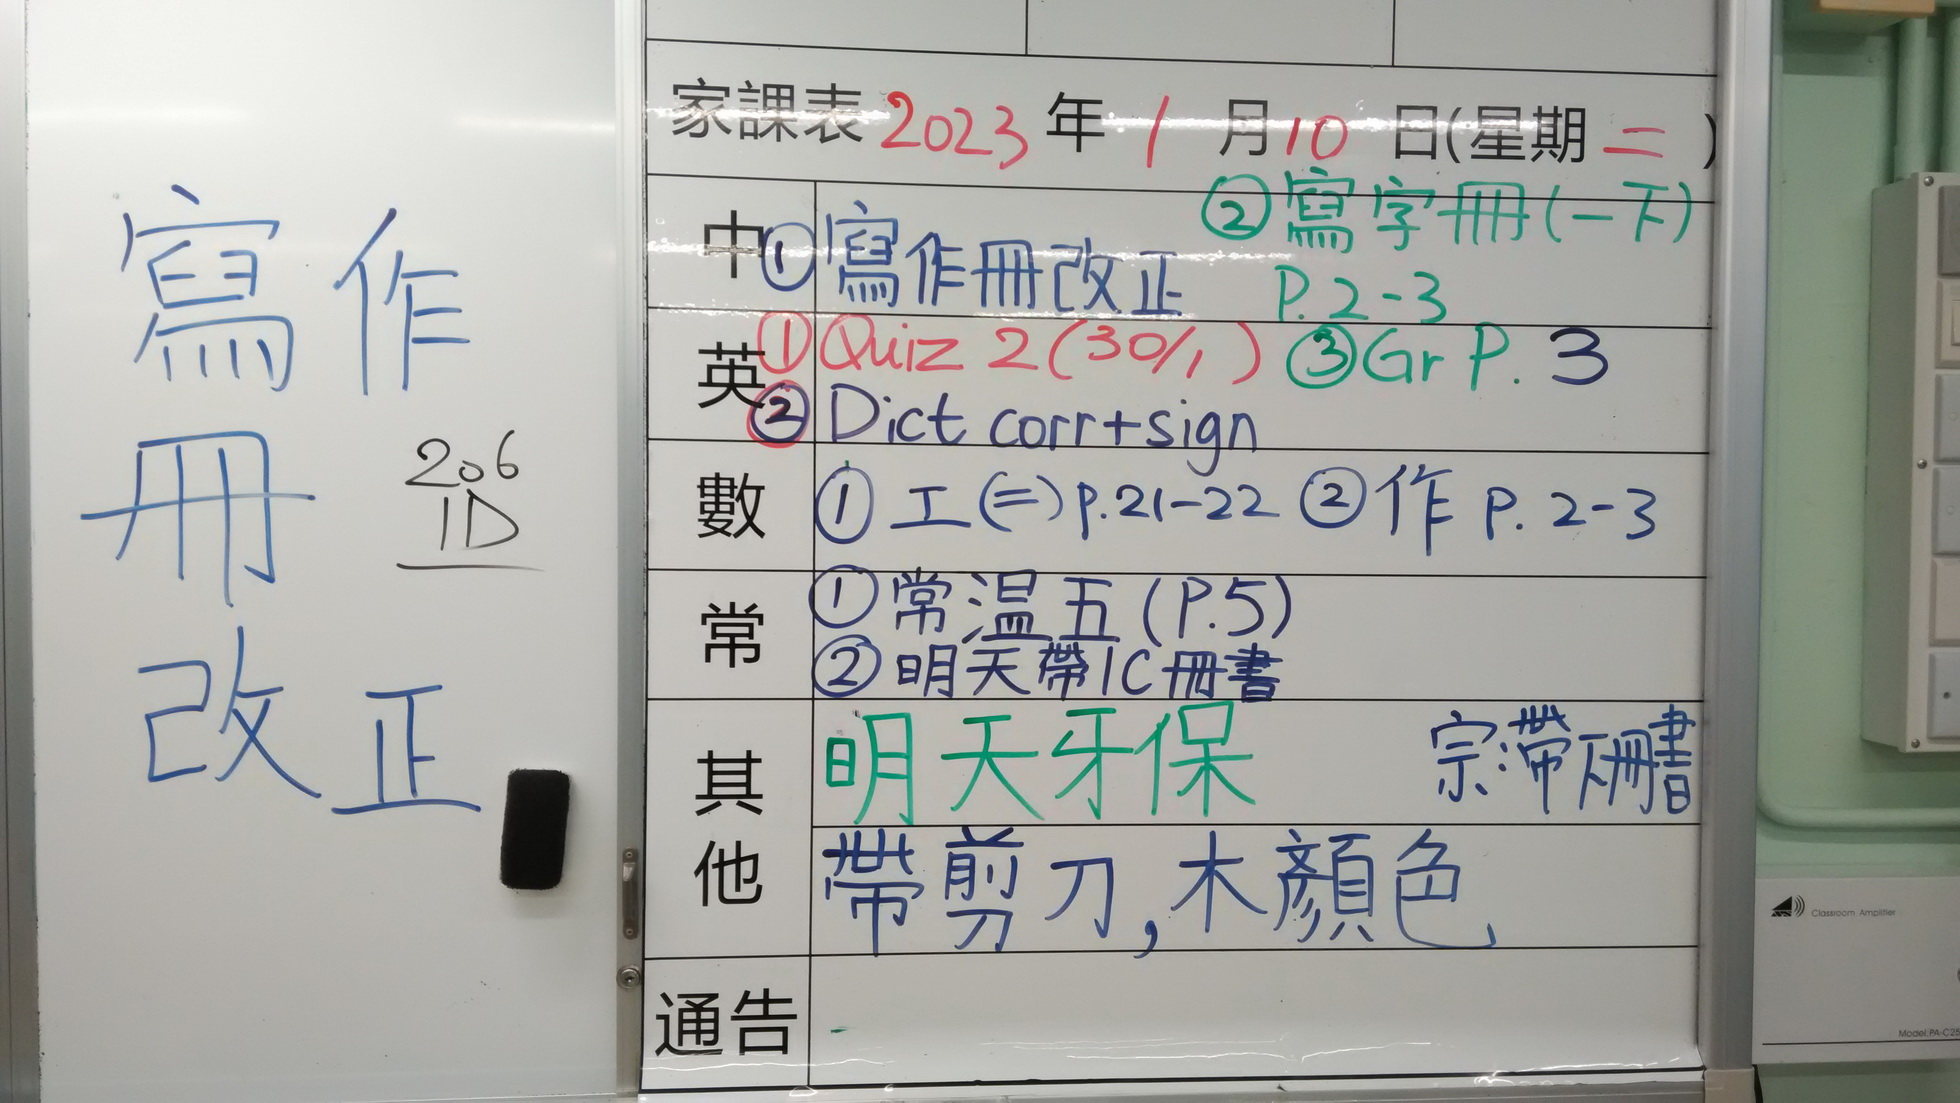 寫作
冊
改正
206
1D
家課表 2023 年 1 月 10 日(星期 二 )
中 ① 寫作冊改正 ② 寫字冊(一下)
P.2-3
英 ① Quiz 2 (30%) ③ Gr P. 3
② Dict corr+sign
數 ① 工(二) p.21-22 ② 作 p. 2-3
常 ① 常溫五 (P.5)
② 明天帶IC冊書
其他 明天牙保 宗:帶下冊書
帶剪刀,木顏色
通告
Classroom Amplifier
Model:PA-C25